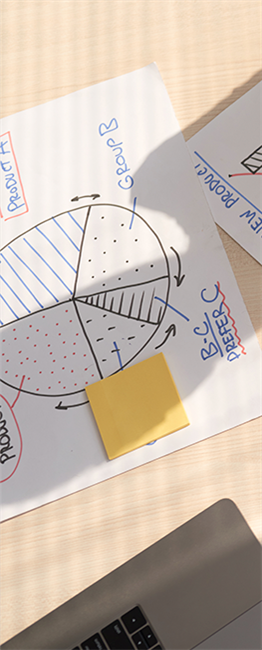 PRODUCT A
GROUP B
B-C
PREFER C
NEW PRODUCT